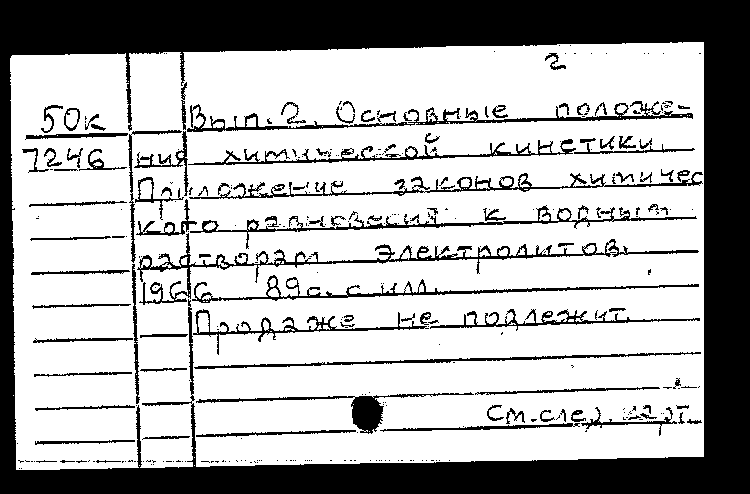 2
50к Вып. 2. Основные положе-
7246 ния химической кинетики.
Приложение законов химичес
кого равновесия к водным
растворам электролитов.
1966 89с. с илл.
Продаже не подлежит.
См. след. карт.